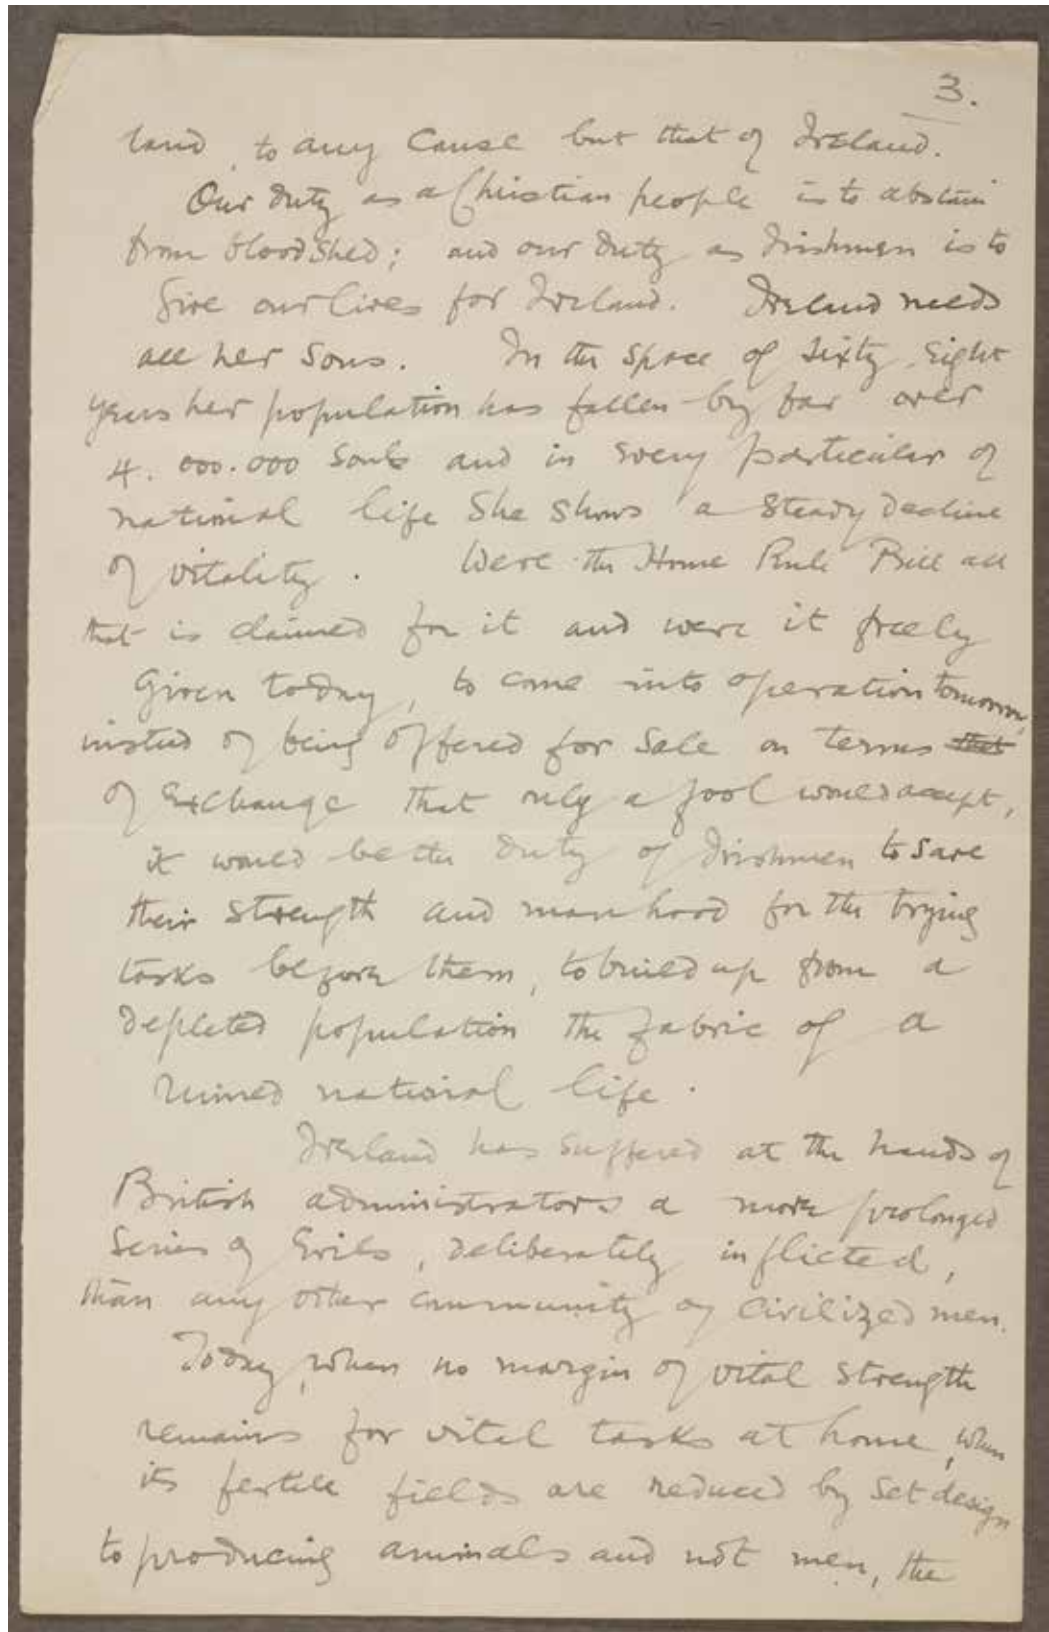 3.
land, to any Cause but that of Ireland.
Our duty as a Christian people is to abstain
from bloodshed; and our duty as Irishmen is to
Give our lives for Ireland. Ireland needs
all her Sons. In the space of Sixty Eight
years her population has fallen by far over
4.000.000 Souls and in every particular of
national life She shows a Steady Decline
of vitality. Were the Home Rule Bill all
that is claimed for it and were it freely
Given today, to come into operation tomorrow,
instead of being offered for Sale on terms that
of Exchange that only a fool would accept,
it would be the Duty of Irishmen to save
their strength and manhood for the trying
tasks before them, to build up from a
Depleted population the fabric of a
ruined national life.
Ireland has Suffered at the hands of
British administrators a more prolonged
Series of Evils, deliberately inflicted,
than any other community of Civilized men.
Today, when no margin of vital strength
remains for vital tasks at home, when
its fertile fields are reduced by Set design
to producing animals and not men, the